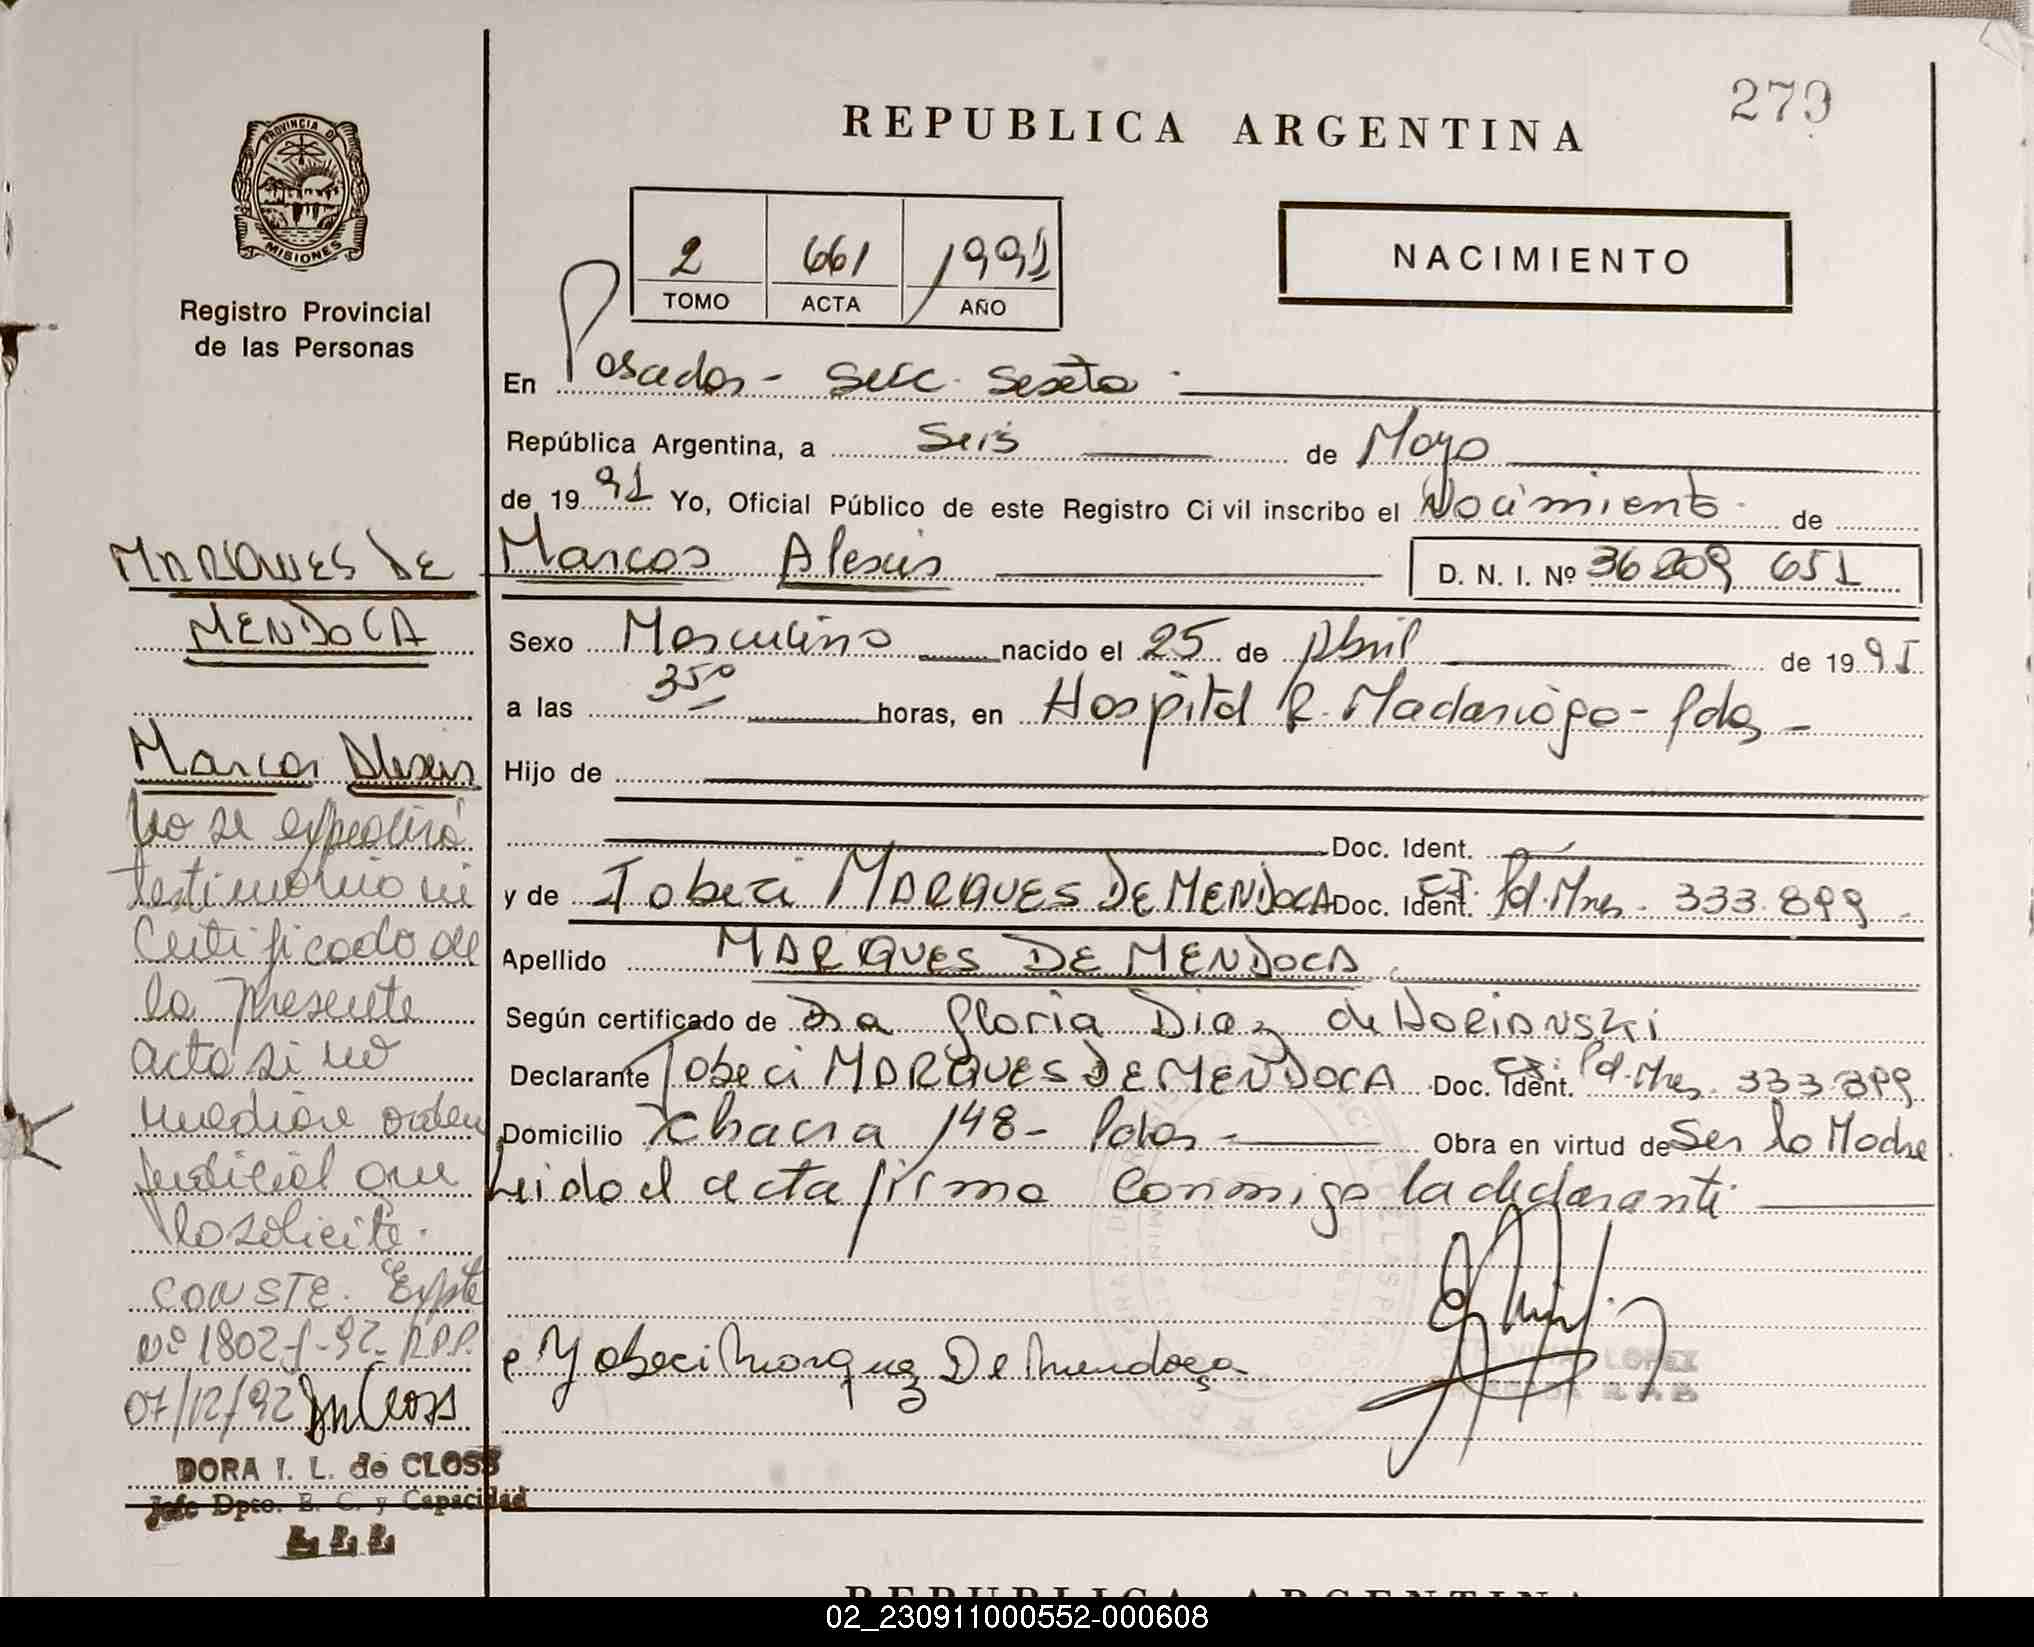 279
REPUBLICA ARGENTINA
PROVINCIA DE
MISIONES
Registro Provincial
de las Personas
2 661 1991
TOMO ACTA AÑO
NACIMIENTO
En Posadas - Secc. Sexta -
República Argentina, a Seis de Mayo
de 1991 Yo, Oficial Público de este Registro Civil inscribo el Nacimiento de
Marcos Alexis D. N. I. Nº 36 209 651
Sexo Masculino nacido el 25 de Abril de 1991
a las 3 50 horas, en Hospital R. Madariaga - Pdas -
Hijo de
Doc. Ident.
y de Iobeci MARQUES DE MENDOCA Doc. Ident. CI. Pol. Mnes. 333.899
Apellido MARQUES DE MENDOCA
Según certificado de Dra Gloria Diaz de
Declarante Iobeci MARQUES DE MENDOCA Doc. Ident. CI. Pol. Mnes. 333.899
Domicilio Chacra 148 - Pdas - Obra en virtud de Ser la Madre
Leida el acta firma conmigo la declarante
Yobeci Marquez De Mendoça
LOPEZ
MARQUES DE
MENDOCA
Marcos Alexis
No se expedirá
testimonio ni
Certificado de
la presente
acta si no
mediare orden
Judicial que
lo solicite.
CONSTE. Expte
Nº 1802-f-92-R.P.P.
07/12/92
DORA I. L. de CLOSS
Jefe Dpto. E. C. y Capacidad
REPUBLICA ARGENTINA
02_230911000552-000608